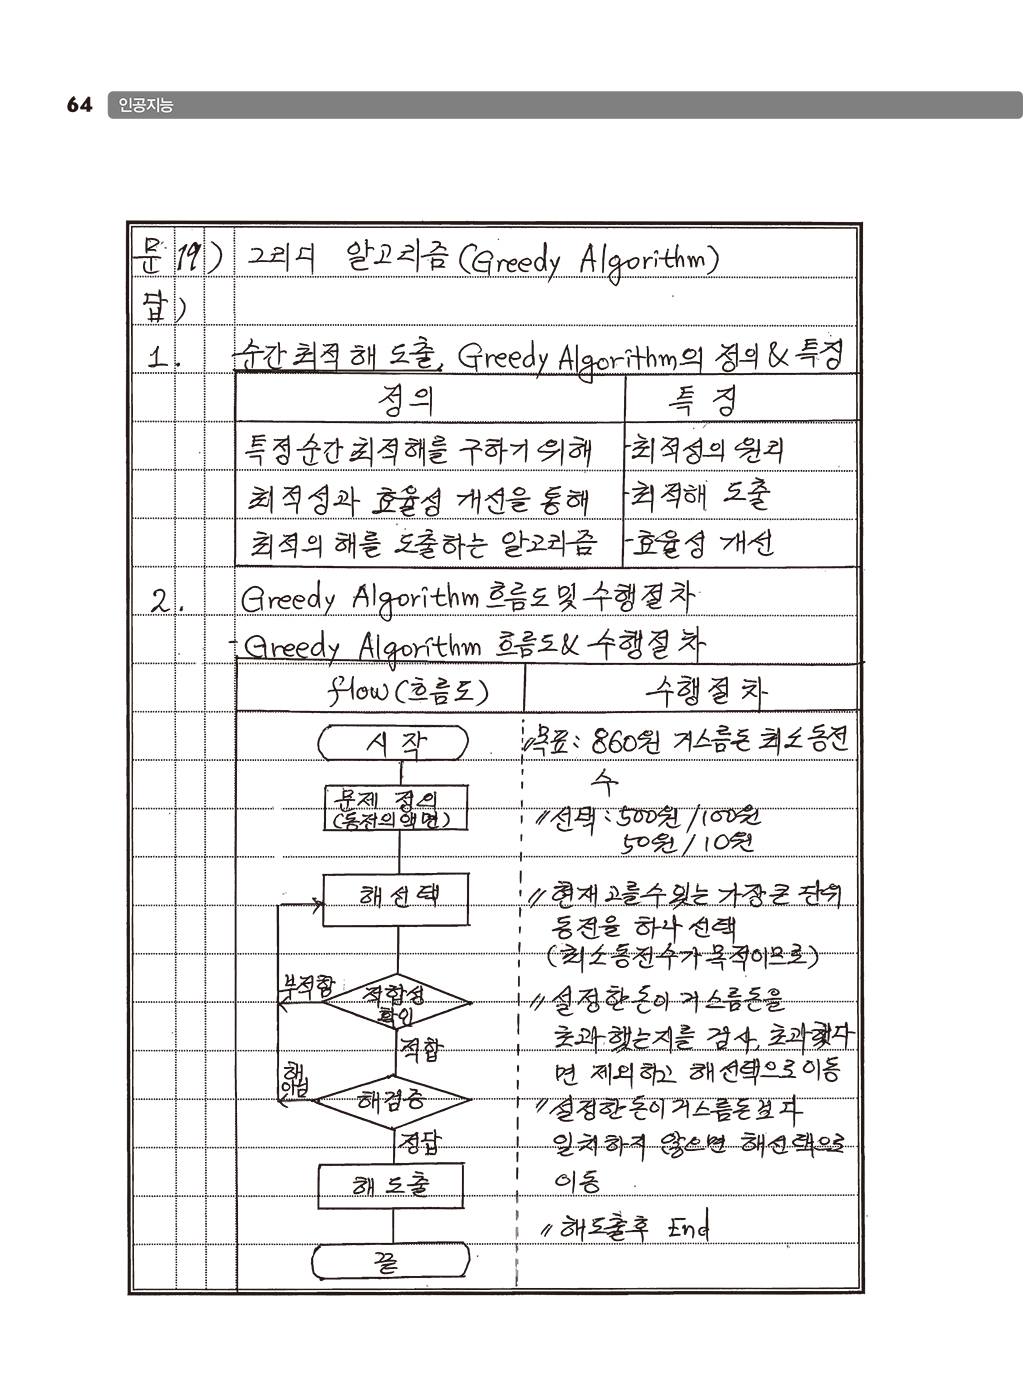 64 인공지능
문 19) 그리디 알고리즘(Greedy Algorithm)
답)
1. 순간 최적 해 도출, Greedy Algorithm의 정의 & 특징
정의 특징
특정 순간 최적해를 구하기 위해 - 최적성의 원리
최적성과 효율성 개선을 통해 - 최적해 도출
최적의 해를 도출하는 알고리즘 - 효율성 개선
2. Greedy Algorithm 흐름도 및 수행절차
- Greedy Algorithm 흐름도 & 수행절차
flow(흐름도) 수행절차
시작 // 목표: 860원 거스름돈 최소 동전
수
문제 정의
(동전의 액면) // 선택: 500원/100원
50원/10원
해 선택 // 현재 고를 수 있는 가장 큰 단위
동전을 하나 선택
(최소 동전수가 목적이므로)
부적합 적합성 // 설정한 돈이 거스름돈을
확인
초과했는지를 검사, 초과했다
적합
면 제외하고 해선택으로 이동
해
아님 해검증 // 설정한 돈이 거스름돈보다
정답 일치하지 않으면 해선택으로
해 도출 이동
// 해도출후 End
끝